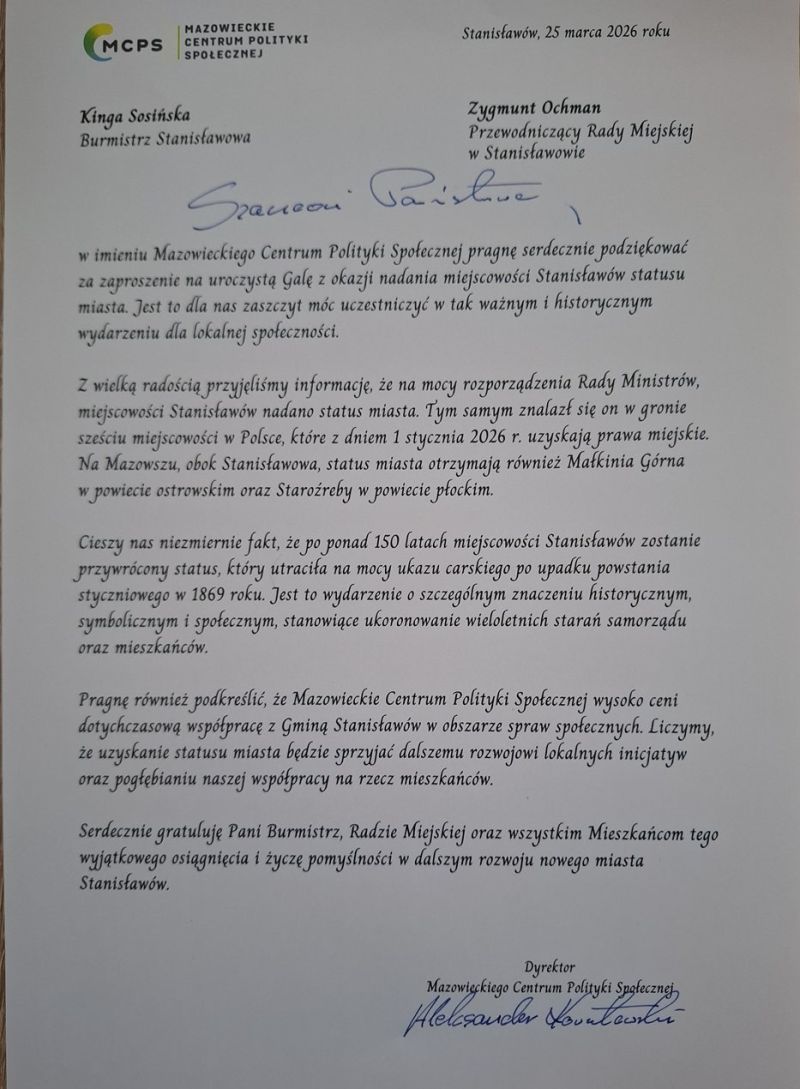 MCPS
MAZOWIECKIE
CENTRUM POLITYKI
SPOŁECZNEJ
Stanisławów, 25 marca 2026 roku
Kinga Sosińska
Burmistrz Stanisławowa
Zygmunt Ochman
Przewodniczący Rady Miejskiej
w Stanisławowie
Szanowni Państwo,
w imieniu Mazowieckiego Centrum Polityki Społecznej pragnę serdecznie podziękować
za zaproszenie na uroczystą Galę z okazji nadania miejscowości Stanisławów statusu
miasta. Jest to dla nas zaszczyt móc uczestniczyć w tak ważnym i historycznym
wydarzeniu dla lokalnej społeczności.
Z wielką radością przyjęliśmy informację, że na mocy rozporządzenia Rady Ministrów,
miejscowości Stanisławów nadano status miasta. Tym samym znalazł się on w gronie
sześciu miejscowości w Polsce, które z dniem 1 stycznia 2026 r. uzyskają prawa miejskie.
Na Mazowszu, obok Stanisławowa, status miasta otrzymają również Małkinia Górna
w powiecie ostrowskim oraz Staroźreby w powiecie płockim.
Cieszy nas niezmiernie fakt, że po ponad 150 latach miejscowości Stanisławów zostanie
przywrócony status, który utraciła na mocy ukazu carskiego po upadku powstania
styczniowego w 1869 roku. Jest to wydarzenie o szczególnym znaczeniu historycznym,
symbolicznym i społecznym, stanowiące ukoronowanie wieloletnich starań samorządu
oraz mieszkańców.
Pragnę również podkreślić, że Mazowieckie Centrum Polityki Społecznej wysoko ceni
dotychczasową współpracę z Gminą Stanisławów w obszarze spraw społecznych. Liczymy,
że uzyskanie statusu miasta będzie sprzyjać dalszemu rozwojowi lokalnych inicjatyw
oraz pogłębianiu naszej współpracy na rzecz mieszkańców.
Serdecznie gratuluję Pani Burmistrz, Radzie Miejskiej oraz wszystkim Mieszkańcom tego
wyjątkowego osiągnięcia i życzę pomyślności w dalszym rozwoju nowego miasta
Stanisławów.
Dyrektor
Mazowieckiego Centrum Polityki Społecznej
Aleksander